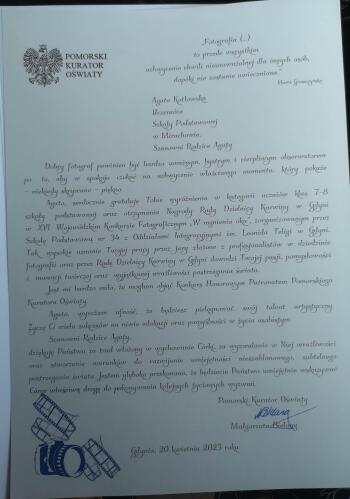 POMORSKI
KURATOR
OŚWIATY
„Fotografia (...)
to przede wszystkim
uchwycenie chwili niezauważalnej dla innych osób,
dopóki nie zostanie uwieczniona."
Agata Kotłowska
Uczennica
Szkoły Podstawowej
w Mirachowie,
Szanowni Rodzice Agaty
Dobry fotograf powinien być bardzo uważnym, bystrym i cierpliwym obserwatorem
po to, aby w spokoju czekać na uchwycenie właściwego momentu, który pokaże
– niekiedy skrywane – piękno.
Agato, serdecznie gratuluję Tobie wyróżnienia w kategorii uczniów klas 7-8
szkoły podstawowej oraz otrzymania Nagrody Rady Dzielnicy Karwiny w Gdyni
w XVI Wojewódzkim Konkursie Fotograficznym „W mgnieniu oka", zorganizowanym przez
Szkołę Podstawową nr 34 z Oddziałami Integracyjnymi im. Leonida Teligi w Gdyni.
Tak wysokie uznanie Twojej pracy przez jury złożone z profesjonalistów w dziedzinie
fotografii oraz przez Radę Dzielnicy Karwiny w Gdyni dowodzi Twojej pasji, pomysłowości
i inwencji twórczej oraz wyjątkowej wrażliwości postrzegania świata.
Jest mi bardzo miło, że mogłam objąć Konkurs Honorowym Patronatem Pomorskiego
Kuratora Oświaty.
Agato, wyrażam ufność, że będziesz pielęgnować swój talent artystyczny.
Życzę Ci wielu sukcesów na niwie edukacji oraz pomyślności w życiu osobistym.
Szanowni Rodzice Agaty,
dziękuję Państwu za trud włożony w wychowanie Córki, za wyzwalanie w Niej wrażliwości
oraz stworzenie warunków do rozwijania umiejętności nieszablonowego, subtelnego
postrzegania świata. Jestem głęboko przekonana, że będziecie Państwo umiejętnie wskazywać
Córce właściwą drogę do pokonywania kolejnych życiowych wyzwań.
Pomorski Kurator Oświaty
Małgorzata Bielang
Gdynia, 20 kwietnia 2023 roku